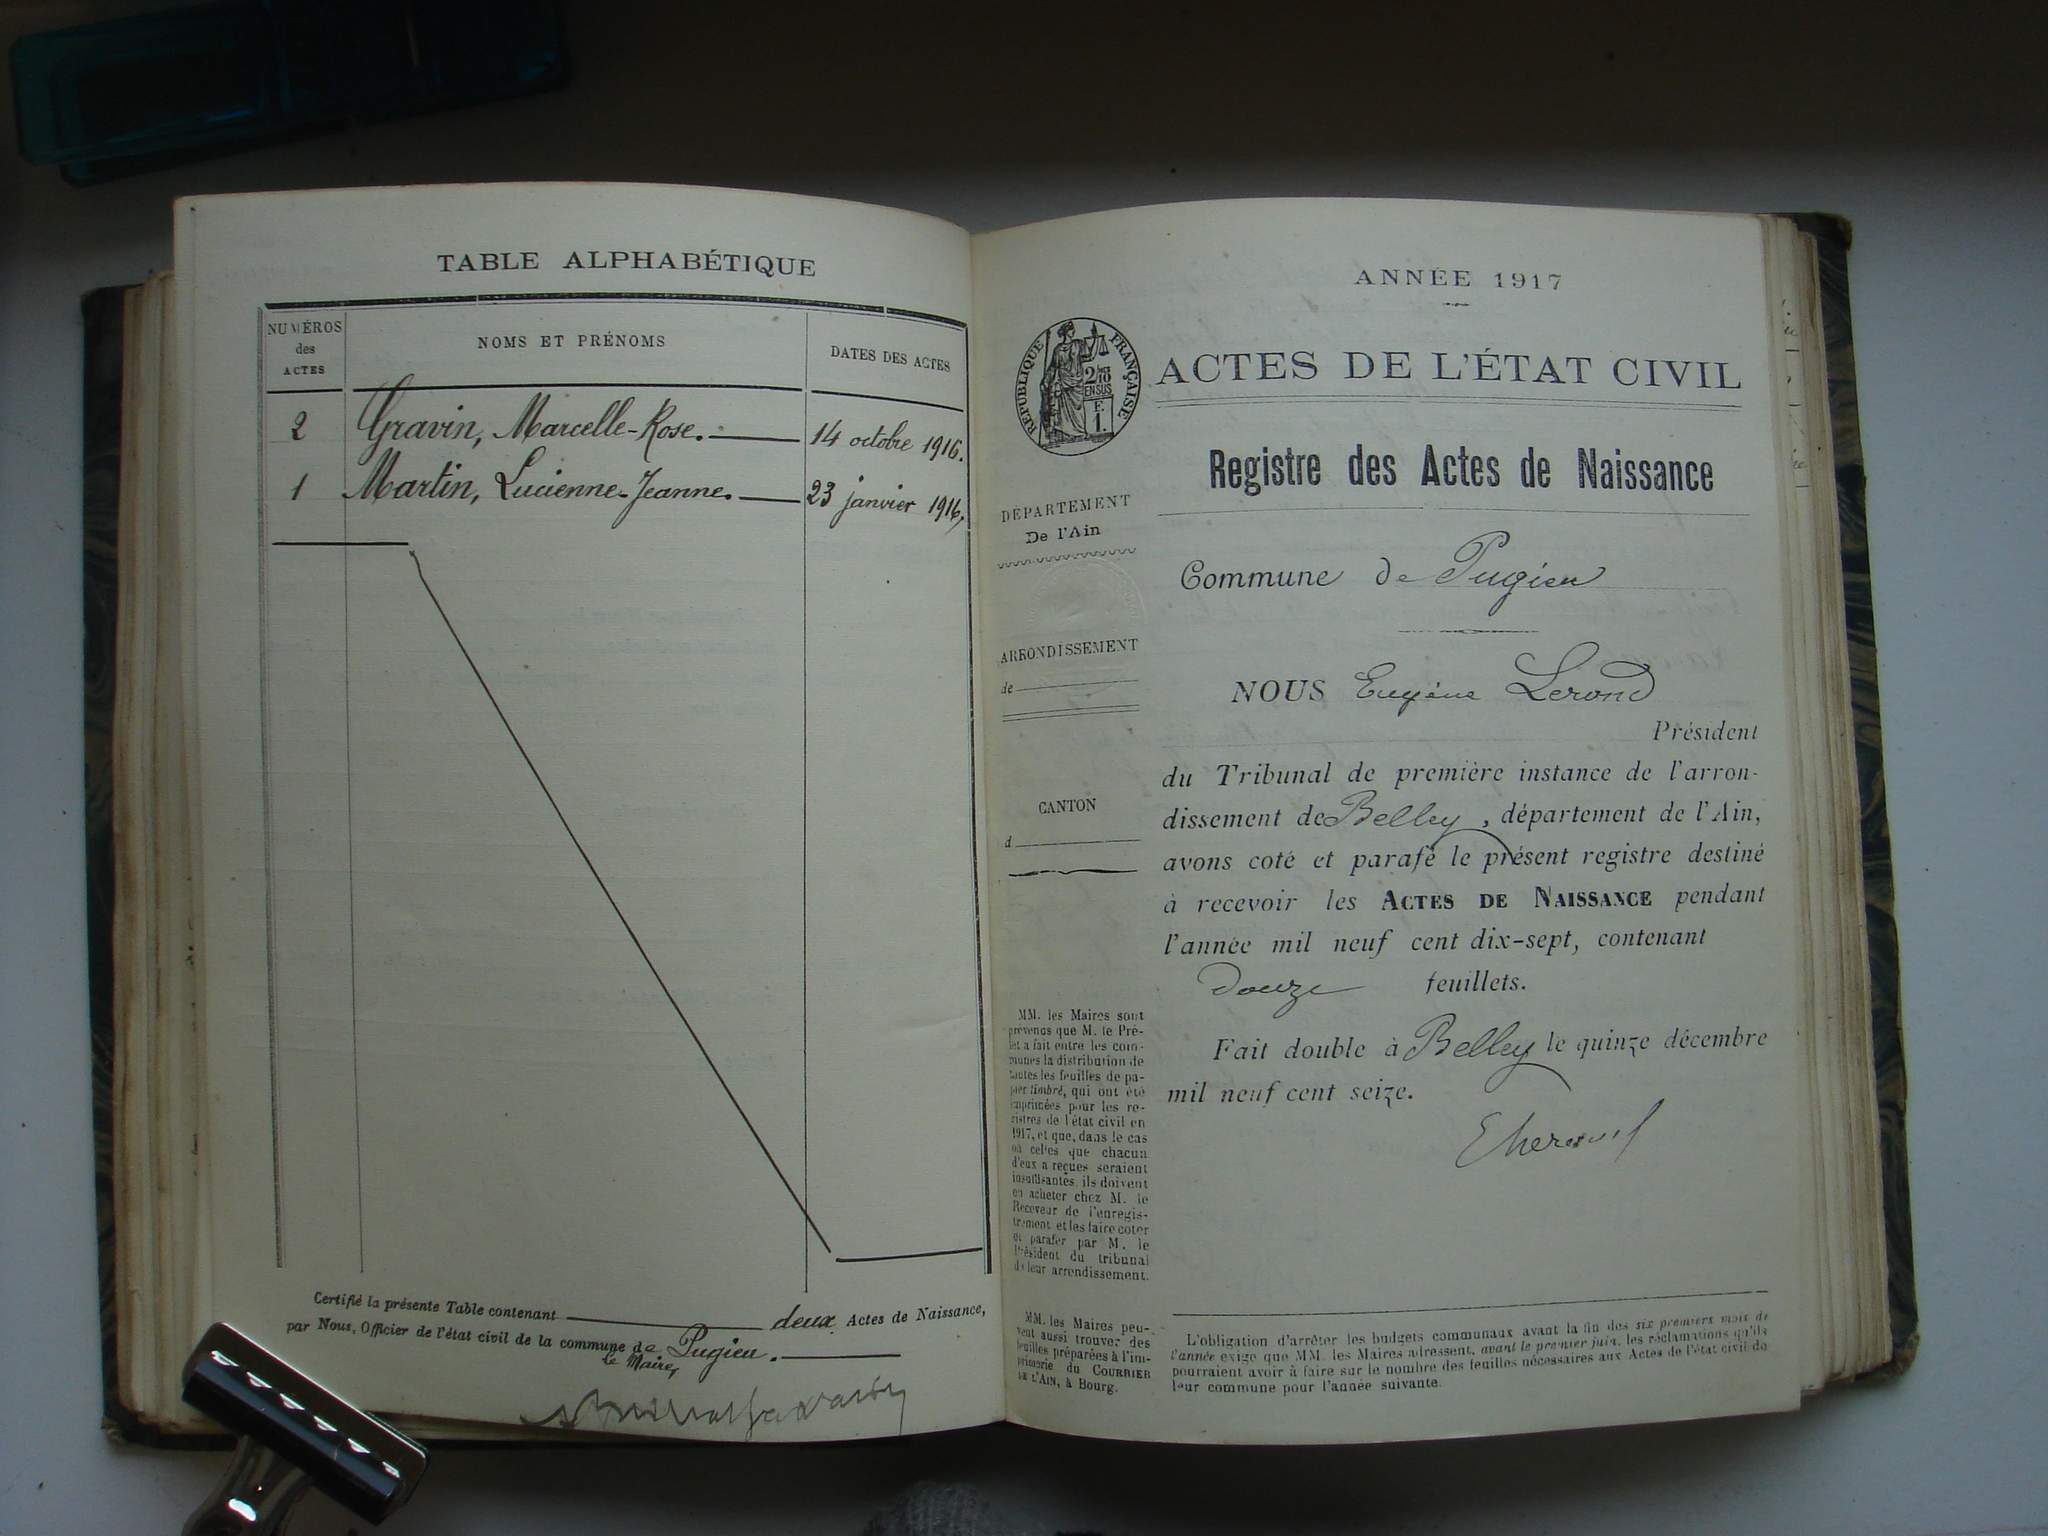 TABLE ALPHABÉTIQUE
NUMÉROS
des
ACTES
NOMS ET PRÉNOMS
DATES DES ACTES
2 Gravin, Marcelle-Rose. 14 octobre 1916.
1 Martin, Lucienne-Jeanne. 23 janvier 1916,
Certifié la présente Table contenant deux Actes de Naissance,
par Nous, Officier de l'état civil de la commune de Pugieu.
le Maire,
ANNÉE 1917
RÉPUBLIQUE FRANÇAISE
2/10
EN SUS
F.
1.
ACTES DE L'ÉTAT CIVIL
Registre des Actes de Naissance
DÉPARTEMENT
De l'Ain
ARRONDISSEMENT
de
CANTON
d
Commune de Pugieu
NOUS Eugène Lerond
Président
du Tribunal de première instance de l'arron-
dissement de Belley, département de l'Ain,
avons coté et parafé le présent registre destiné
à recevoir les ACTES DE NAISSANCE pendant
l'année mil neuf cent dix-sept, contenant
Douze feuillets.
Fait double à Belley le quinze décembre
mil neuf cent seize.
MM. les Maires sont
prévenus que M. le Pré-
fet a fait entre les com-
munes la distribution de
toutes les feuilles de pa-
pier timbré, qui ont été
imprimées pour les re-
gistres de l'état civil en
1917, et que, dans le cas
où celles que chacun
d'eux a reçues seraient
insuffisantes, ils doivent
en acheter chez M. le
Receveur de l'enregis-
trement et les faire coter
et parafer par M. le
Président du tribunal
de leur arrondissement.
MM. les Maires peu-
vent aussi trouver des
feuilles préparées à l'im-
primerie du COURRIER
DE L'AIN, à Bourg.
L'obligation d'arrêter les budgets communaux avant la fin des six premiers mois de
l'année exige que MM. les Maires adressent, avant le premier juin, les réclamations qu'ils
pourraient avoir à faire sur le nombre des feuilles nécessaires aux Actes de l'état civil de
leur commune pour l'année suivante.